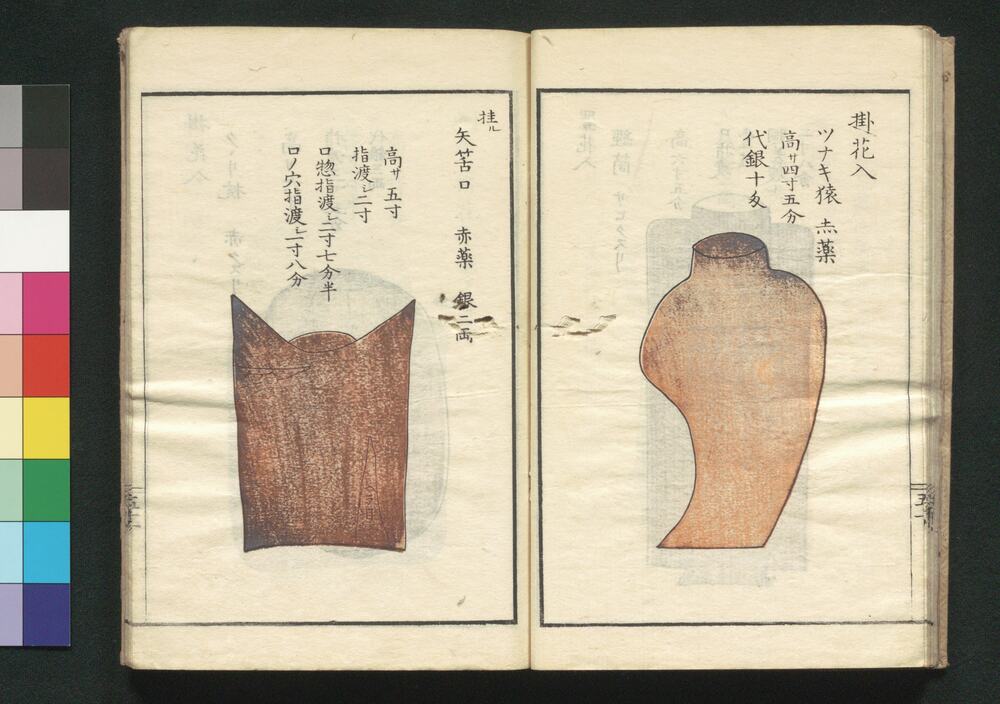 掛花入
ツナキ猿 赤薬
高サ四寸五分
代銀十匁
掛ル
矢筈口 赤薬 銀二両
高サ五寸
指渡シ二寸
口惣指渡シ二寸七分半
口ノ穴指渡シ一寸八分